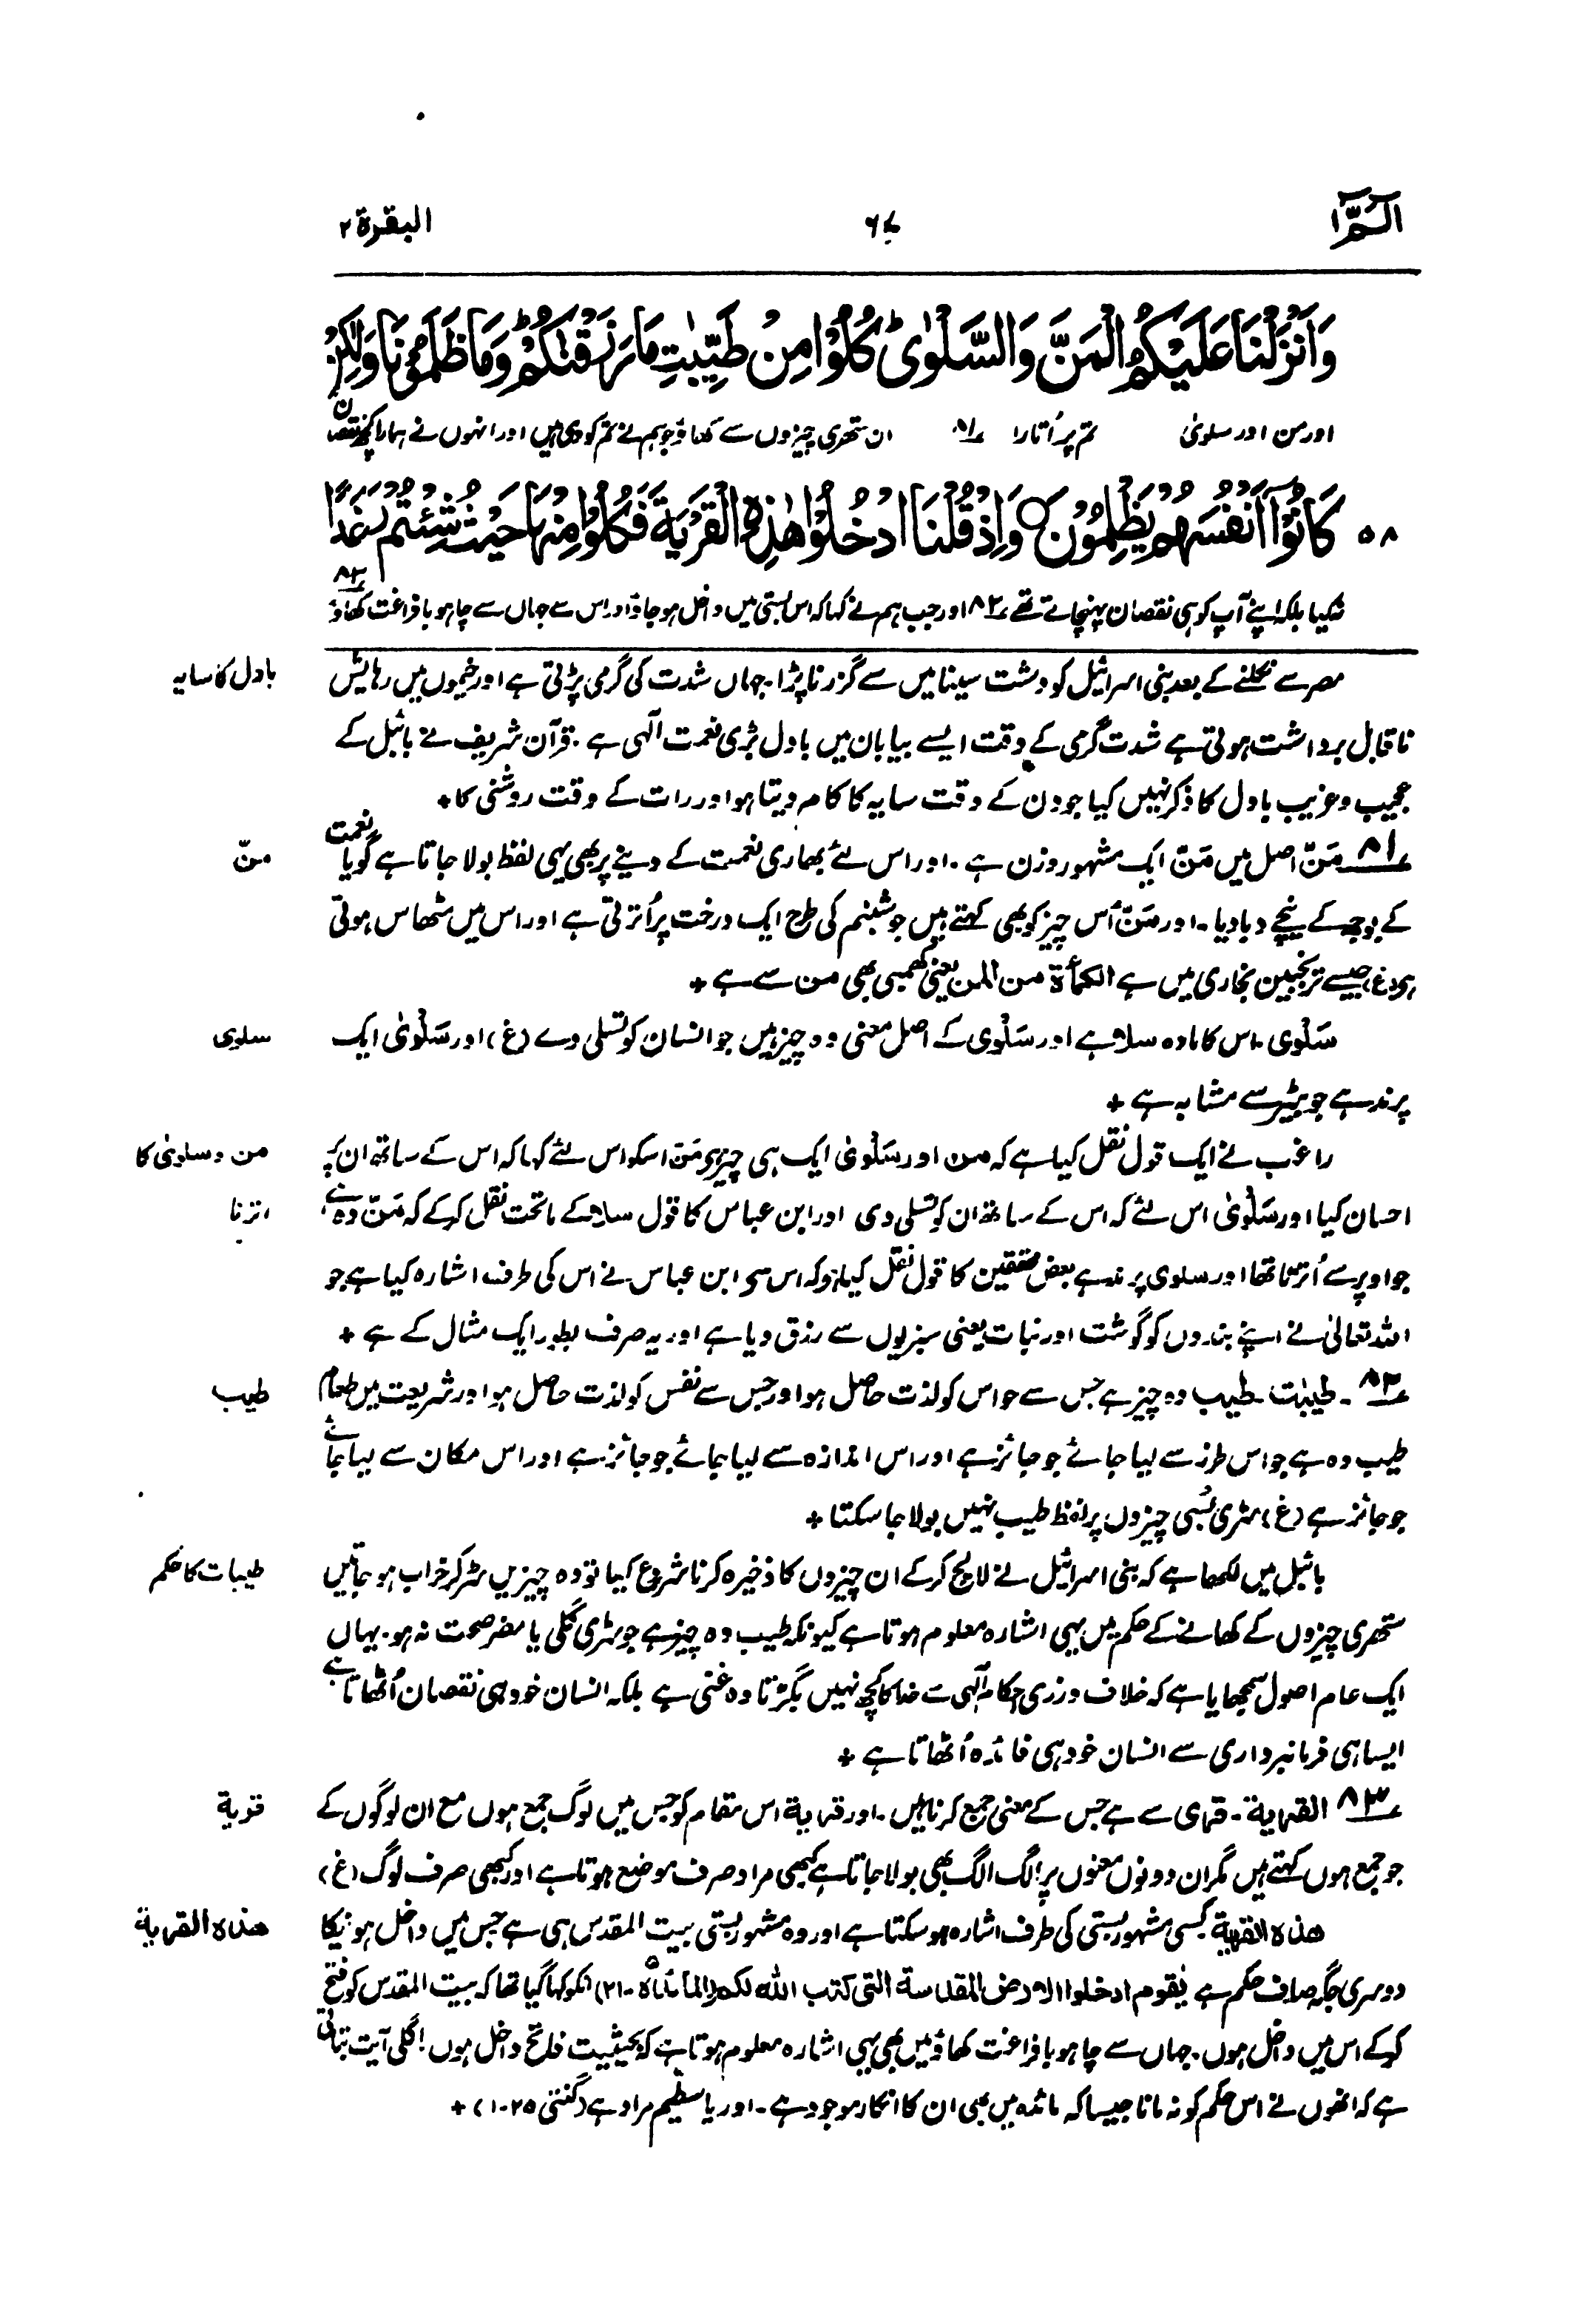 الٓمّٓ ا
۶۷
البقرۃ ۲
وَاَنْزَلْنَا عَلَيْكُمُ الْمَنَّ وَالسَّلْوٰىؕ كُلُوْا مِنْ طَيِّبٰتِ مَا رَزَقْنٰكُمْؕ وَمَا ظَلَمُوْنَا وَلٰكِنْ
اور من اور سلویٰ تم پر اُتارا ۸۱ ان ستھری چیزوں سے کھاؤ جو ہم نے تم کو دی ہیں اور انہوں نے ہمارا کچھ نقصان
۵۸ كَانُوْۤا اَنْفُسَهُمْ يَظْلِمُوْنَ ○ وَاِذْ قُلْنَا ادْخُلُوْا هٰذِهِ الْقَرْيَةَ فَكُلُوْا مِنْهَا حَيْثُ شِئْتُمْ رَغَدًا
نہ کیا بلکہ اپنے آپ کو ہی نقصان پہنچاتے تھے ۸۲ اور جب ہم نے کہا کہ اس بستی میں داخل ہو جاؤ اور اس سے جہاں سے چاہو با فراغت کھاؤ ۸۳
بادل کا سایہ
مصر سے نکلنے کے بعد بنی اسرائیل کو دشت سینا میں سے گزرنا پڑا۔ جہاں شدت کی گرمی پڑتی ہے اور خیموں میں رہائش
ناقابل برداشت ہوتی ہے شدت گرمی کے وقت ایسے بیابان میں بادل بڑی نعمت الٰہی ہے۔ قرآن شریف نے بائبل کے
عجیب و غریب بادل کا ذکر نہیں کیا جو دن کے وقت سایہ کا کام دیتا ہو اور رات کے وقت روشنی کا +
منّ
۸۱ مَنّ اصل میں مَنّ ایک مشہور وزن ہے۔ اور اس لئے بھاری نعمت کے دینے پر بھی یہی لفظ بولا جاتا ہے گویا نعمت
کے بوجھ کے نیچے دبا دیا۔ اور مَنّ اُس چیز کو بھی کہتے ہیں جو شبنم کی طرح ایک درخت پر اُترتی ہے اور اس میں مٹھاس ہوتی
ہے (غ) جیسے ترنجبین بخاری میں ہے الکمأۃ من المن یعنی کھمبی بھی من سے ہے +
سلوی
سَلْوٰی۔ اس کا مادہ سلا ہے اور سَلْوٰی کے اصل معنی وہ چیز ہیں جو انسان کو تسلی دے (غ) اور سَلْوٰی ایک
پرند ہے جو بٹیر سے مشابہ ہے +
من و سلویٰ کا
راغب نے ایک قول نقل کیا ہے کہ من اور سَلْویٰ ایک ہی چیز ہے مَنّ اسکو اس لئے کہا کہ اس کے ساتھ ان پر
اترنا
احسان کیا اور سَلْوٰی اس لئے کہ اس کے ساتھ ان کو تسلی دی اور ابن عباس کا قول سلا کے ماتحت نقل کر کے کہ مَنّ وہ ہے
جو اوپر سے اُترتا تھا اور سلوی پرند ہے بعض محققین کا قول نقل کیا ہے کہ اس سے ابن عباس نے اس کی طرف اشارہ کیا ہے جو
اللہ تعالیٰ نے اپنے بندوں کو گوشت اور نبات یعنی سبزیوں سے رزق دیا ہے اور یہ صرف بطور ایک مثال کے ہے +
طیب
۸۲۔ طیبٰت۔ طیب وہ چیز ہے جس سے حواس کو لذت حاصل ہو اور جس سے نفس کو لذت حاصل ہو اور شریعت میں طعام
طیب وہ ہے جو اس طرز سے لیا جائے جو جائز ہے اور اس اندازہ سے لیا جائے جو جائز ہے اور اس مکان سے لیا جائے
جو جائز ہے (غ) سڑی بُسی چیزوں پر لفظ طیب نہیں بولا جا سکتا +
طیبات کا حکم
بائبل میں لکھا ہے کہ بنی اسرائیل نے لالچ کر کے ان چیزوں کا ذخیرہ کرنا شروع کیا تو وہ چیزیں سڑ کر خراب ہو جاتیں
ستھری چیزوں کے کھانے کے حکم میں یہی اشارہ معلوم ہوتا ہے کیونکہ طیب وہ چیز ہے جو سڑی گلی یا مضر صحت نہ ہو۔ یہاں
ایک عام اصول سمجھایا ہے کہ خلاف ورزی احکام الٰہی سے خدا کا کچھ نہیں بگڑتا وہ غنی ہے بلکہ انسان خود ہی نقصان اُٹھاتا ہے
ایسا ہی فرمانبرداری سے انسان خود ہی فائدہ اُٹھاتا ہے +
قریۃ
۸۳ القریۃ۔ قری سے ہے جس کے معنی جمع کرنا ہیں۔ اور قریۃ اس مقام کو جس میں لوگ جمع ہوں مع ان لوگوں کے
جو جمع ہوں کہتے ہیں مگر ان دونوں معنوں پر الگ الگ بھی بولا جاتا ہے کبھی مراد صرف موضع ہوتا ہے اور کبھی صرف لوگ (غ)
ھذہ القریۃ
ھذہ القریۃ کسی مشہور بستی کی طرف اشارہ ہو سکتا ہے اور وہ مشہور بستی بیت المقدس ہی ہے جس میں داخل ہونیکا
دوسری جگہ صاف حکم ہے یٰقوم ادخلوا الارض المقدسۃ التی کتب اللہ لکم (المائدۃ ۔۲۱) انکو کہا گیا تھا کہ بیت المقدس کو فتح
کر کے اس میں داخل ہوں۔ جہاں سے چاہو با فراغت کھاؤ میں بھی یہی اشارہ معلوم ہوتا ہے کہ بحیثیت فاتح داخل ہوں اگلی آیت بتاتی
ہے کہ انھوں نے اس حکم کو نہ مانا جیسا کہ مائدہ میں بھی ان کا انکار موجود ہے۔ اور یا سطیم مراد ہے (گنتی ۲۵۔۱) +